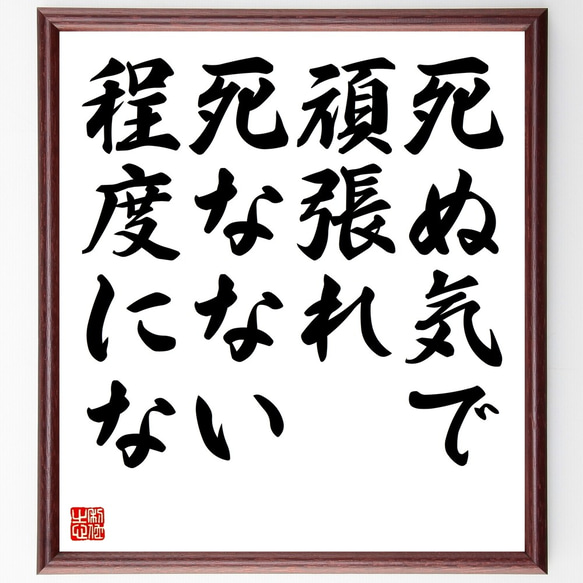 死ぬ気で
頑張れ
死なない
程度にな